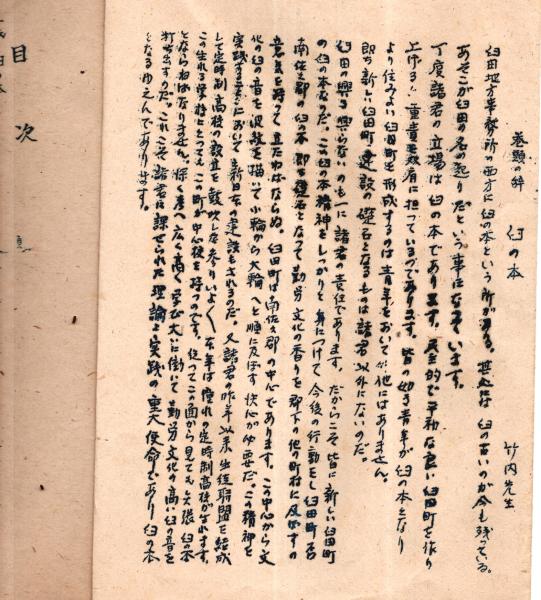 巻頭の辞　臼の本
竹内先生
臼田地方事務所の西方に臼の本という所がある。其処には臼の古いのが今も残っている。
あそこが臼田の名の起りだという事になっています。
丁度諸君の立場は臼の本であります。民主的で平和な良い臼田町を作り
上げる重責を双肩に担っているのであります。皆の如き青年が臼の本となり
より住みよい臼田町を形成するのは青年をおいて他にはありません。
即ち新しい臼田町建設の礎石となるものは諸君以外にないのだ。
臼田の興る興らないのも一に諸君の責任であります。だからこそ皆に新しい臼田町
の臼の本なのだ。この臼の本精神をしっかりと身につけて今後の行動をし臼田町否
南佐久郡の臼の本即ち礎石となって勤労文化の香りを郡下の他の町村に及ぼすの
意気を持って立たねばならぬ。臼田町は南佐久郡の中心であります。この中心から文
化の臼の音を波紋を描いて小輪から大輪へと順に及ぼす決心が必要だ。この精神を
実践する事において新日本の建設もされるのだ。又諸君の昨年以来生徒聯盟を結成
して定時制高校の設立を鼓吹しな参りいよく本年は憧れの定時制高校が生れます。
この生れる学校にとってもこの町が中心校を持つのです。従ってこの面から見ても矢張臼の本
とならねばなりません。深く掘へ広く高く学び大いに働いて勤労文化の高い臼の音を
打ち出すのだ。これこそ諸君に課せられた理論と実践の重大使命であり臼の本
となるゆえんであります。
目次